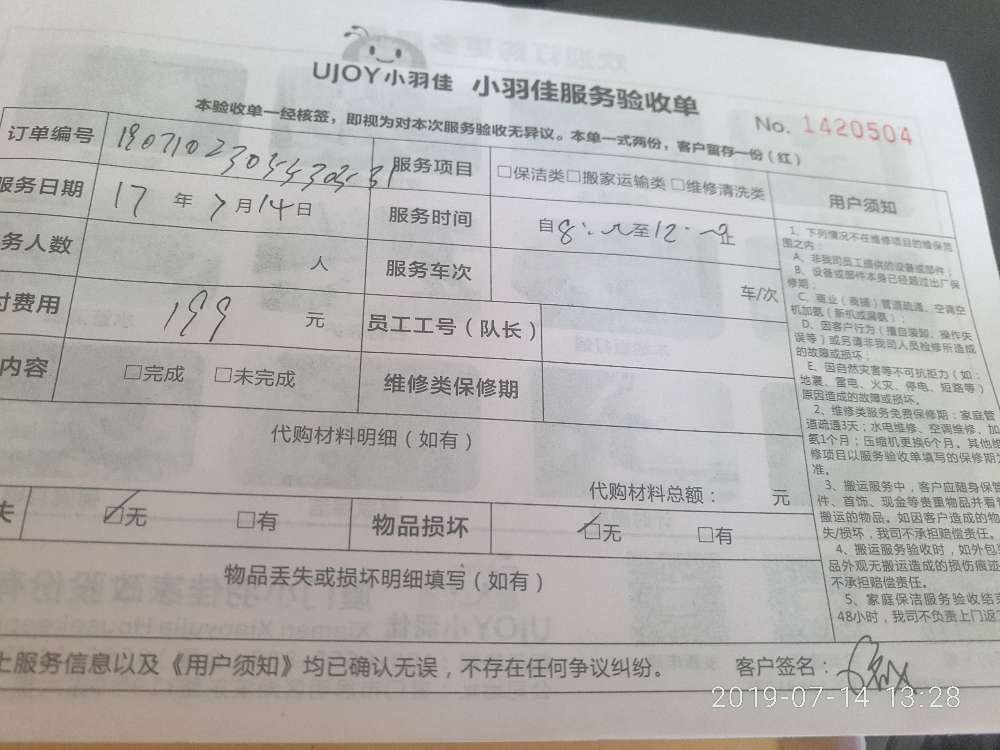 UJOY小羽佳 小羽佳服务验收单
本验收单一经核签，即视为对本次服务验收无异议。本单一式两份，客户留存一份（红）
No. 1420504
订单编号
服务项目 □保洁类□搬家运输类 □维修清洗类
服务日期 17 年 7 月 14 日
服务时间 自8: 至12:
务人数 人
服务车次 车/次
付费用 199 元
员工工号（队长）
内容 □完成 □未完成
维修类保修期
代购材料明细（如有）
代购材料总额： 元
失 ☑无 □有
物品损坏 ☑无 □有
物品丢失或损坏明细填写（如有）
上服务信息以及《用户须知》均已确认无误，不存在任何争议纠纷。 客户签名：
用户须知
1、下列情况不在维修项目的维保范
围之内：
A、非我司员工提供的设备或部件；
B、设备或部件本身已经超过出厂保
修期；
C、商业（商铺）管道疏通、空调空
机加氨（新机或漏氨）；
D、因客户行为（擅自装卸、操作失
误等）或另请非我司人员检修所造成
的故障或损坏；
E、因自然灾害等不可抗拒力（如：
地震、雷电、火灾、停电、短路等）
原因造成的故障或损坏。
2、维修类服务免费保修期：家庭管
道疏通3天；水电维修、空调维修、加
氨1个月；压缩机更换6个月。其他维
修项目以服务验收单填写的保修期为
准。
3、搬运服务中，客户应随身保管
件、首饰、现金等贵重物品并看管
搬运的物品。如因客户造成的物
失/损坏，我司不承担赔偿责任。
4、搬运服务验收时，如外包装
品外观无搬运造成的损伤痕迹
不承担赔偿责任。
5、家庭保洁服务验收结束
48小时，我司不负责上门返
2019-07-14 13:28